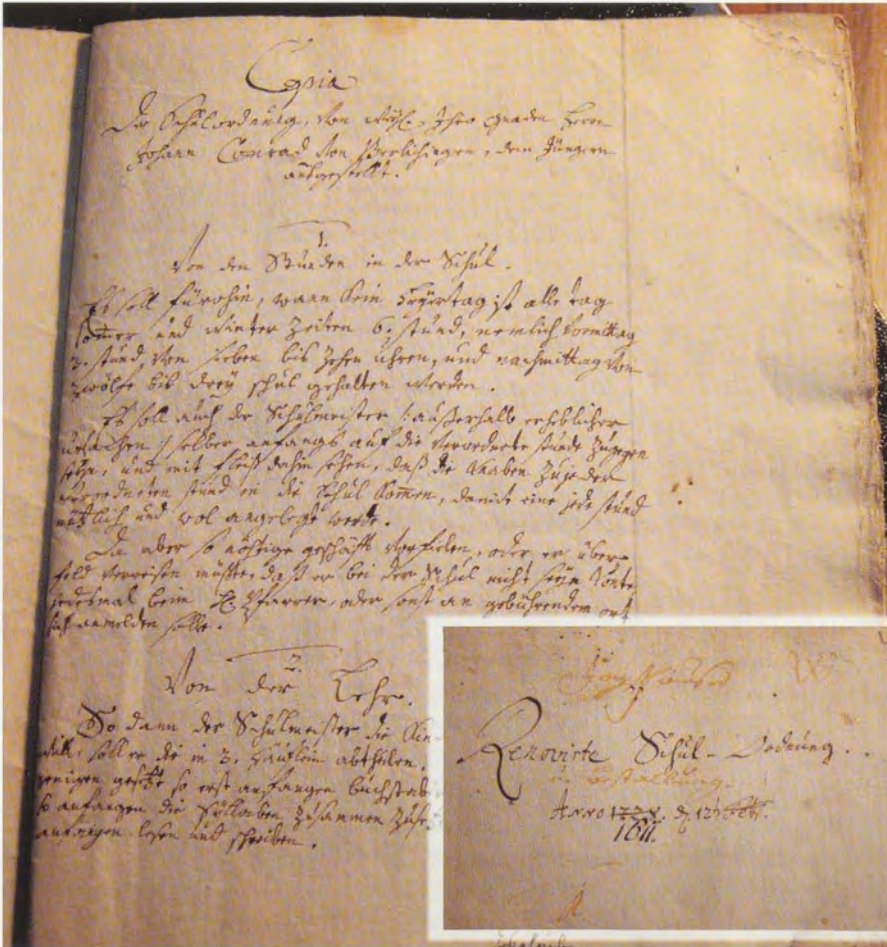 Copia
Der Schulordnung, von weyl. Ihro Gnaden Herrn
Johann Conrad von Berlichingen, dem Jüngern
aufgestellt.
1.
Von den Stunden in der Schul.
Es soll fürohin, wann kein Feyertag ist alle tag
Sommer und Winter Zeiten 6. stund, nemlich vormittag
3. stund, von sieben bis Zehen uhren, und nachmittag von
Zwölfe bis drey schul gehalten werden.
Es soll auch der Schulmeister /:außerhalb erheblicher
ursachen/ selber anfangs auf die verordnete stunde zugegen
seyn, und mit fleiß dahin sehen, daß die Knaben zu jeder
verordneten stund in die Schul kommen, damit eine jede stund
nützlich und wol angelegt werde.
Da aber so nöthige geschäfft vorfielen, oder er über
feld verreisen müßte, daß er bei der Schul nicht seyn könte
jedesmal beim H. Pfarrer, oder sonst an gebührendem ort
sich anmelden solle.
2.
Von der Lehr.
So dann der Schulmeister die Kin-
soll er die in 3. häuflein abtheilen.
jenigen gesetzt so erst anfangen buchstab
so anfangen die Syllaben zusammen
anfangen lesen und schreiben.
Jagsthausen
Renovirte Schul-Ordnung.
u. Bestallung.
Anno
1611.